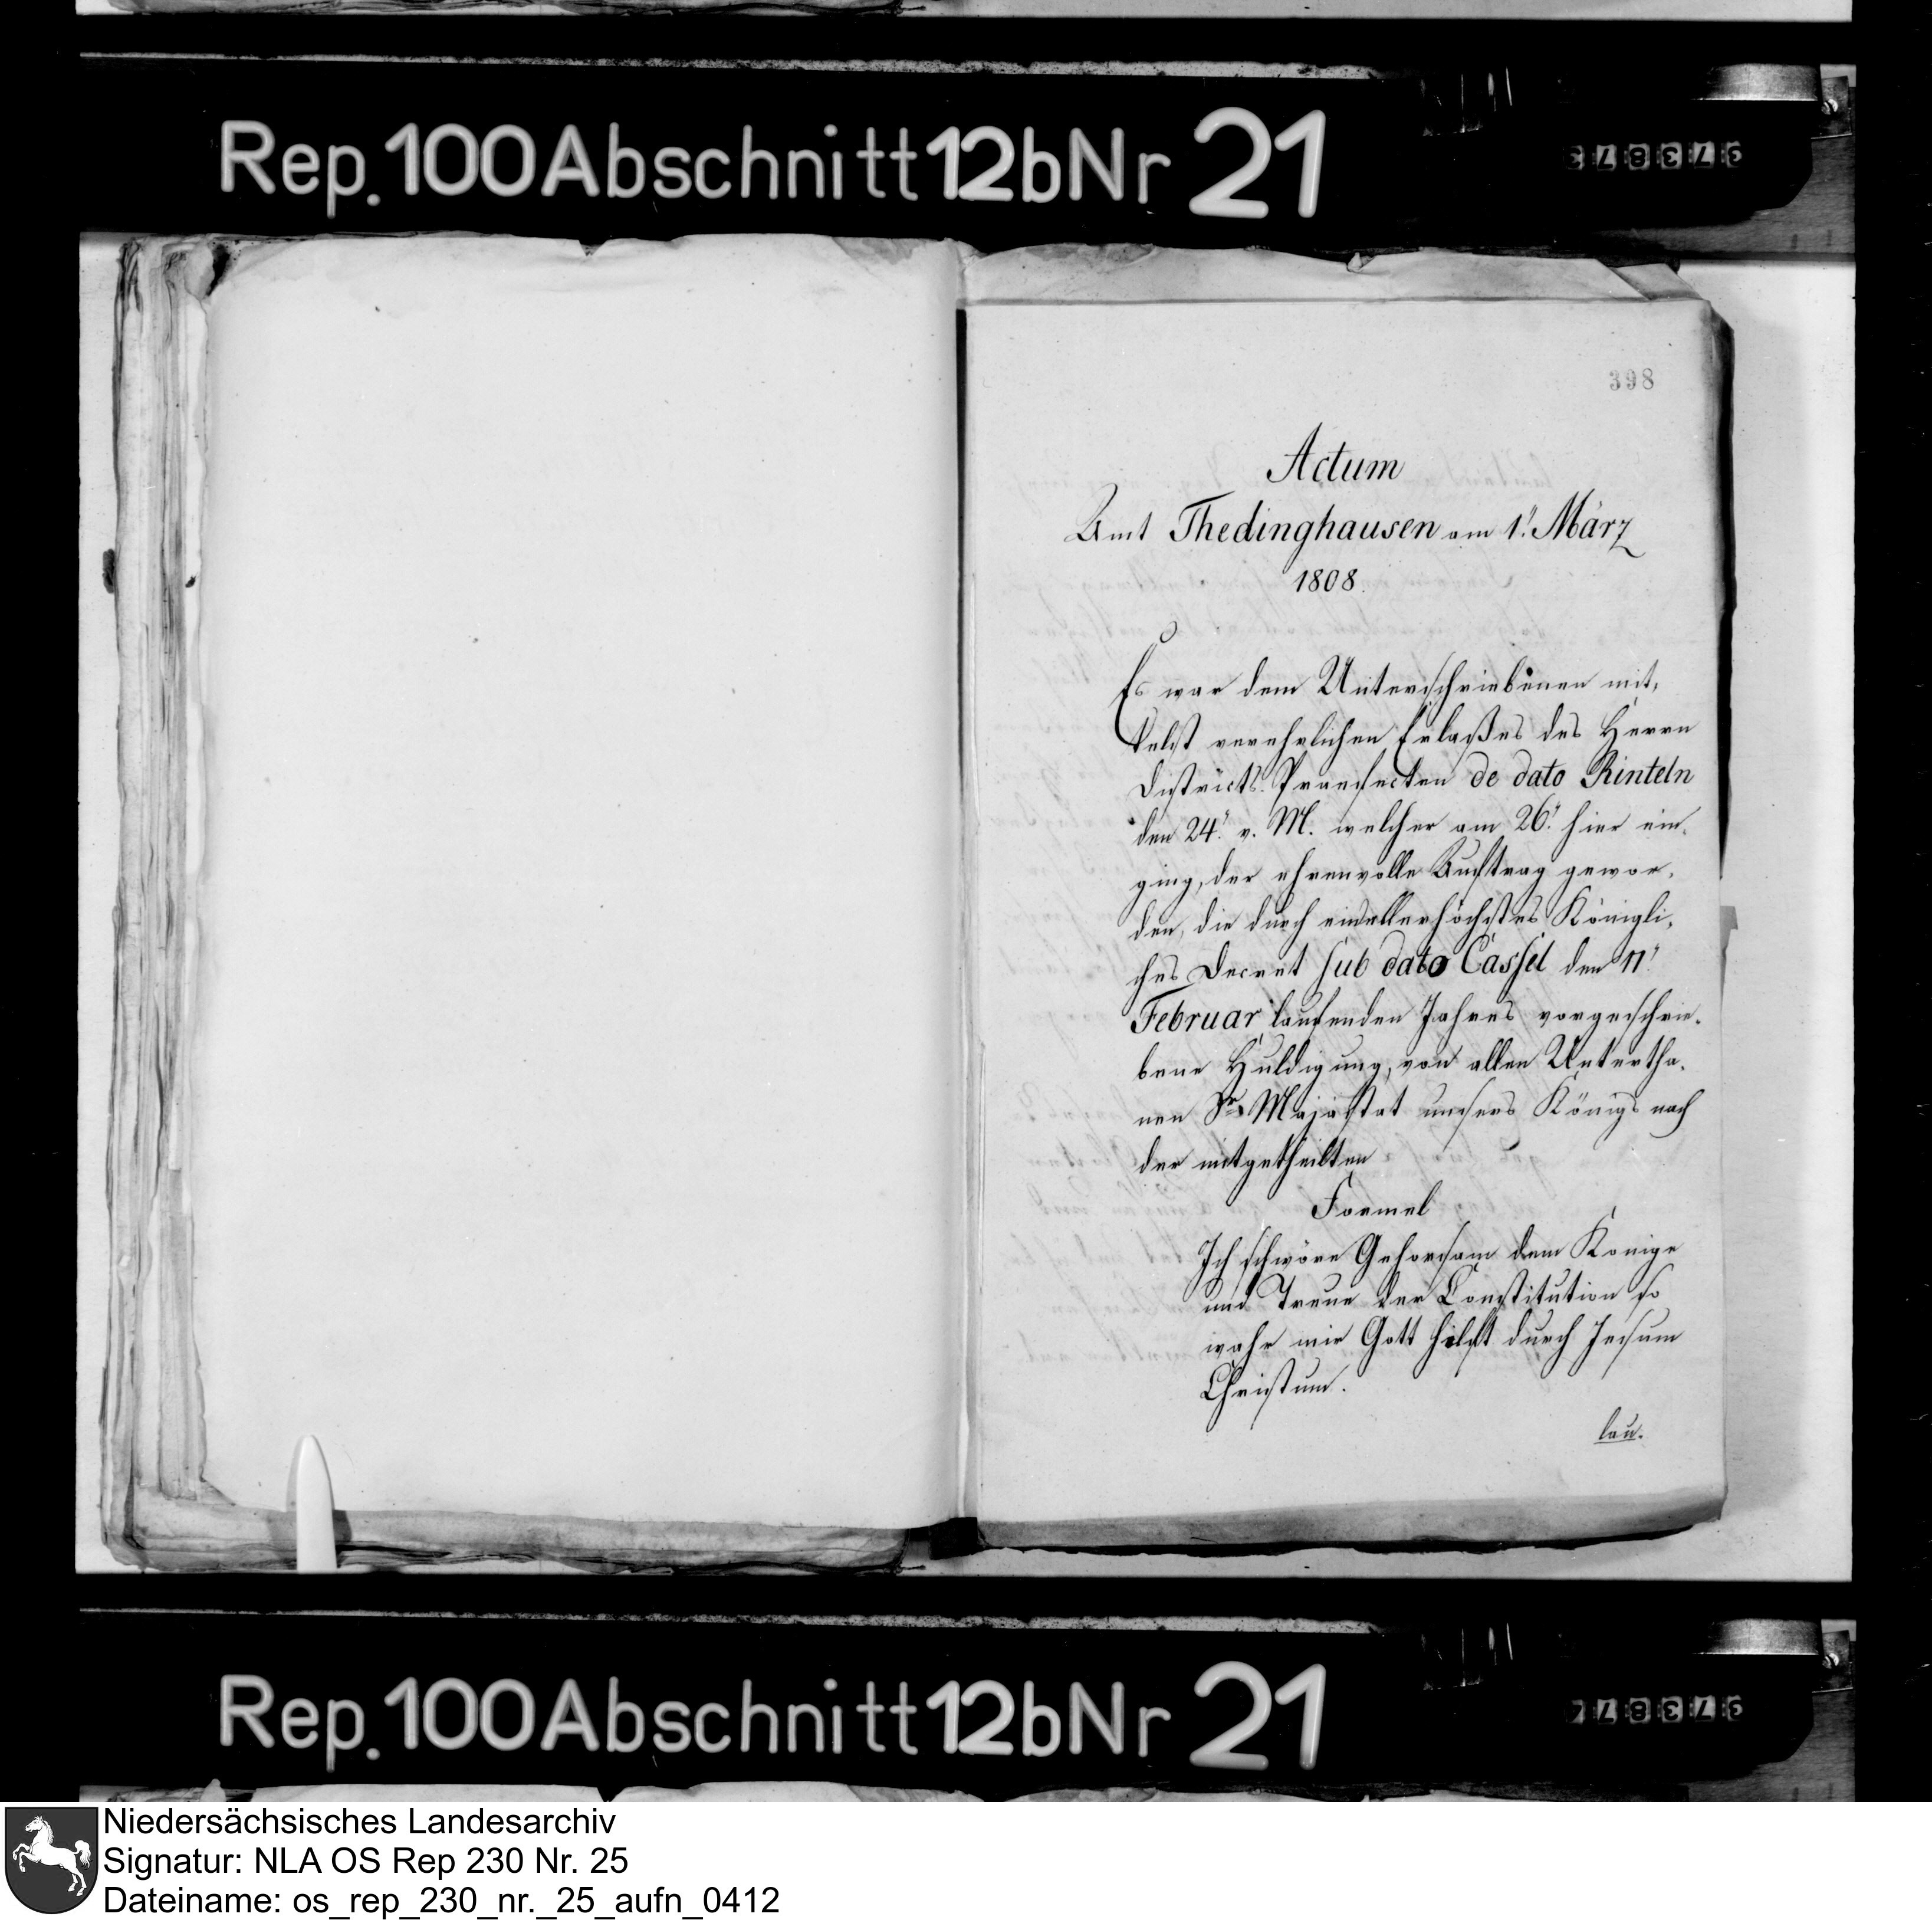 Rep. 100 Abschnitt 12b Nr 21
398
Actum
Amt Thedinghausen am 1." März
1808.
Es war dem Unterschriebenen mit,
telst verehrlichen Erlaßes des Herrn
Districts-Praefecten de dato Rinteln
den 24." v. M. welcher am 26." hier ein-
ging, der ehrenvolle Auftrag gewor-
den, die durch ein allerhöchstes Königli-
ches Decret sub dato Cassel den 11"
Februar laufenden Jahres vorgeschrie-
bene Huldigung, von allen Untertha-
nen Sr. Majästat unsers Königs nach
der mitgetheilten
Formel
Ich schwöre Gehorsam dem Könige
und Treue der Constitution so
wahr mir Gott hilft durch Jesum
Christum.
lau-
Rep. 100 Abschnitt 12b Nr 21
Niedersächsisches Landesarchiv
Signatur: NLA OS Rep 230 Nr. 25
Dateiname: os_rep_230_nr._25_aufn_0412